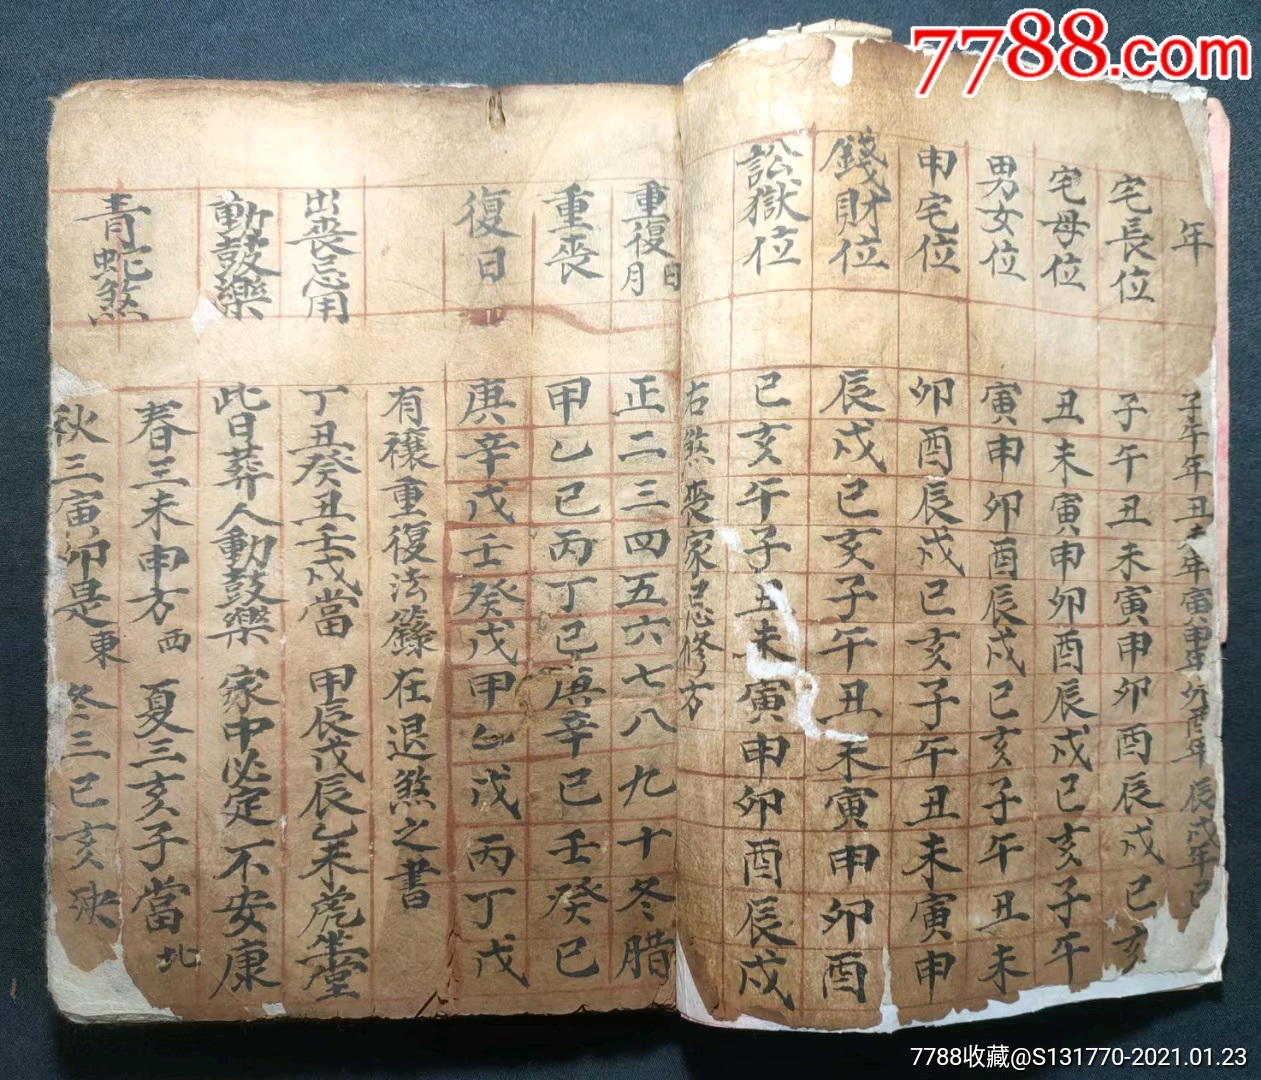 7788.com
年 子午年丑未年寅申年卯酉年辰戌年巳
宅長位 子午丑未寅申卯酉辰戌巳亥
宅母位 丑未寅申卯酉辰戌巳亥子午
男女位 寅申卯酉辰戌巳亥子午丑未
申宅位 卯酉辰戌巳亥子午丑未寅申
錢財位 辰戌巳亥子午丑未寅申卯酉
訟獄位 巳亥午子丑未寅申卯酉辰戌
右煞喪家忌修方
重復月日 正二三四五六七八九十冬腊
重喪 甲乙巳丙丁巳庚辛巳壬癸巳
復日 庚辛戊壬癸戊甲乙戊丙丁戊
有禳重復法籙在退煞之書
出喪忌用 丁丑癸丑壬戌當 甲辰戊辰乙未虎坐堂
動鼓樂 此日葬人動鼓樂 家中必定不安康
青蛇煞 春三未申方西 夏三亥子當北
秋三寅卯是東 冬三巳亥殃
7788收藏@S131770-2021.01.23